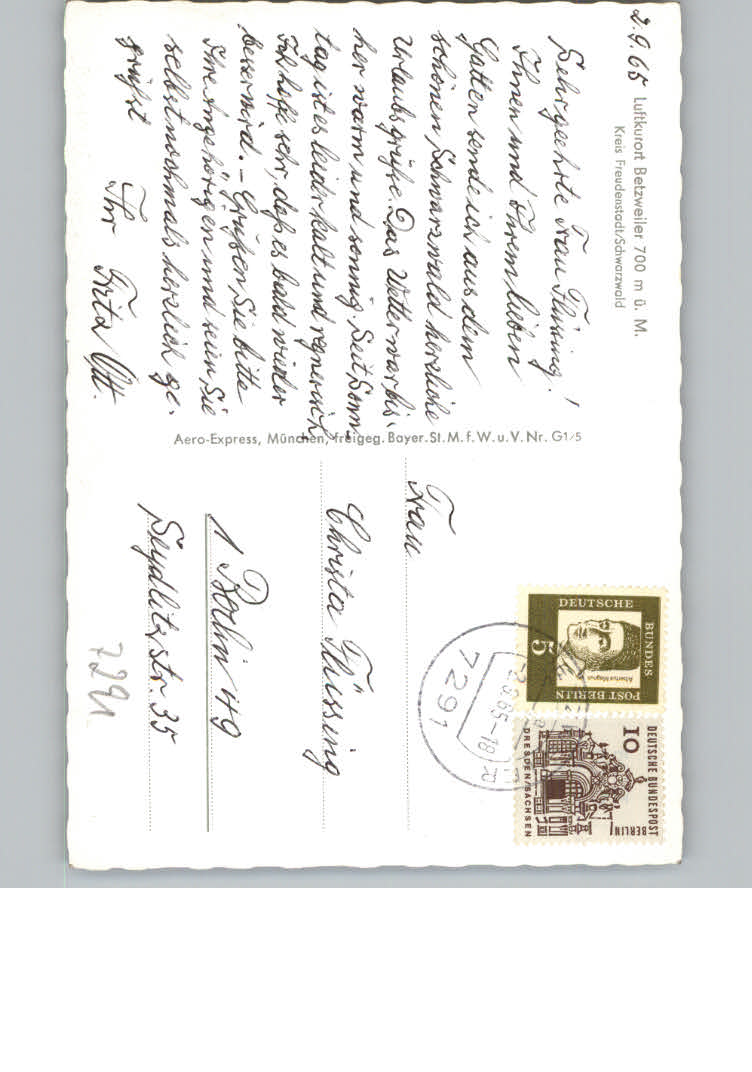 2.9.65
Luftkurort Betzweiler 700 m ü. M.
Kreis Freudenstadt/Schwarzwald
Sehrgeehrte Frau Flüssing!
Ihnen und Ihrem lieben
Gatten sende ich aus dem
schönen Schwarzwald herzliche
Urlaubsgrüße. Das Wetter war bis-
her warm und sonnig. Seit Sonn-
tag ist es leider kalt und regnerisch,
Ich hoffe sehr, daß es bald wieder
besser wird. – Grüßen Sie bitte
Ihre Angehörigen und seien Sie
selbst nochmals herzlich ge-
grüßt
Ihr Fritz Ott.
Aero-Express, München, freigeg. Bayer. St. M. f. W. u. V. Nr. G1/5
Frau
Christa Flüssing
1 Berlin 49
Seydlitzstr. 35
7291
DEUTSCHE BUNDES
POST BERLIN
5
Albertus Magnus
DEUTSCHE BUNDESPOST
BERLIN
10
DRESDEN/SACHSEN
-2.9.65-18
7291